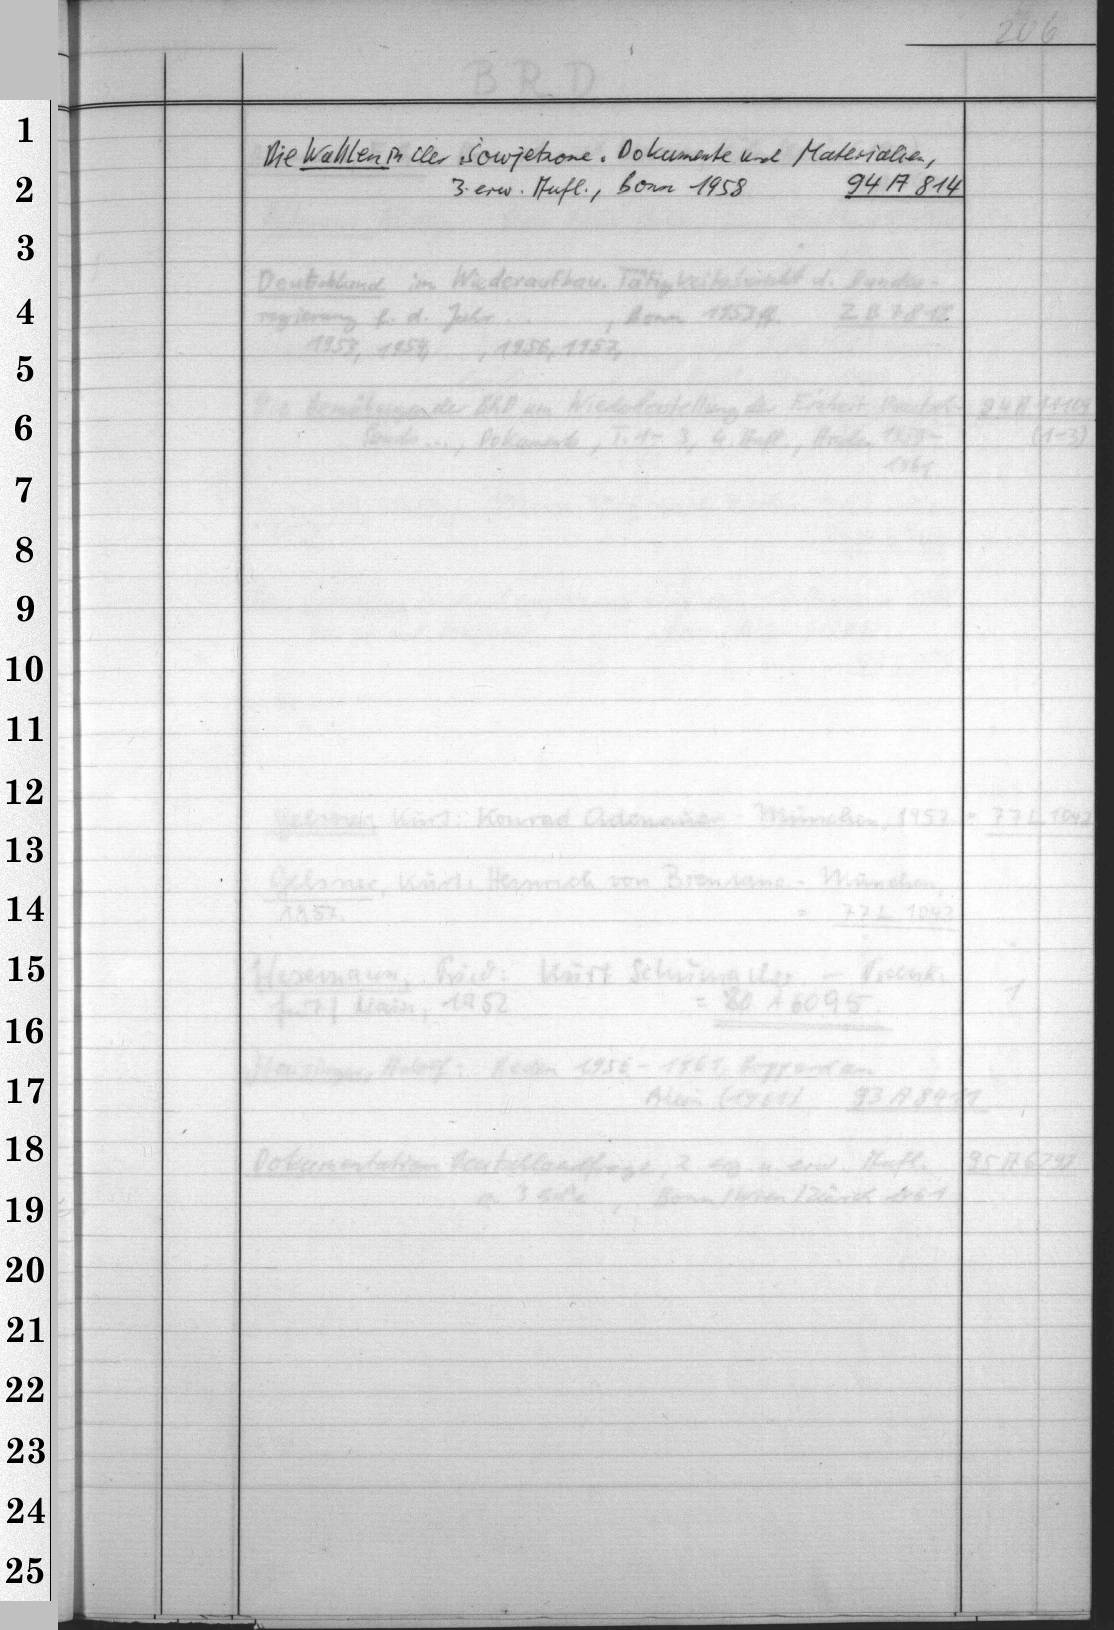 206
BRD
1
Die Wahlen in der Sowjetzone. Dokumente und Materialien,
2
3. erw. Aufl., Bonn 1958 94 A 814
3
Deutschland im Wiederaufbau. Tätigkeitsbericht d. Bundes-
4
regierung f. d. Jahr . . . , Bonn 1953 ff.
5
1953, 1954, , 1956, 1957,
6
Die Bemühungen der BRD um Wiederherstellung der Einheit Deutsch-
lands ..., Dokumente, T. 1-3, 4. Aufl., (1-3)
7
1961
8
9
10
11
12
Gelsner, Kurt: Konrad Adenauer - München, 1957. = 77 L 1042
13
Gelsner, Kurt: Heinrich von Brentano - München,
14
1957. = 77 L 1042
15
Wesemann, Fried: Kurt Schumacher - Frank-
furt / Main, 1952 = 80 A 6095 1
16
Heusinger, Adolf: Reden 1956 - 1961. Boppard am
17
Rhein (1961) 93 A 8911
18
Dokumentation Deutschlandfrage, 2 erg. u. erw. Aufl. 95 A 6797
19
Bonn/Wien/Zürich 1961
20
21
22
23
24
25